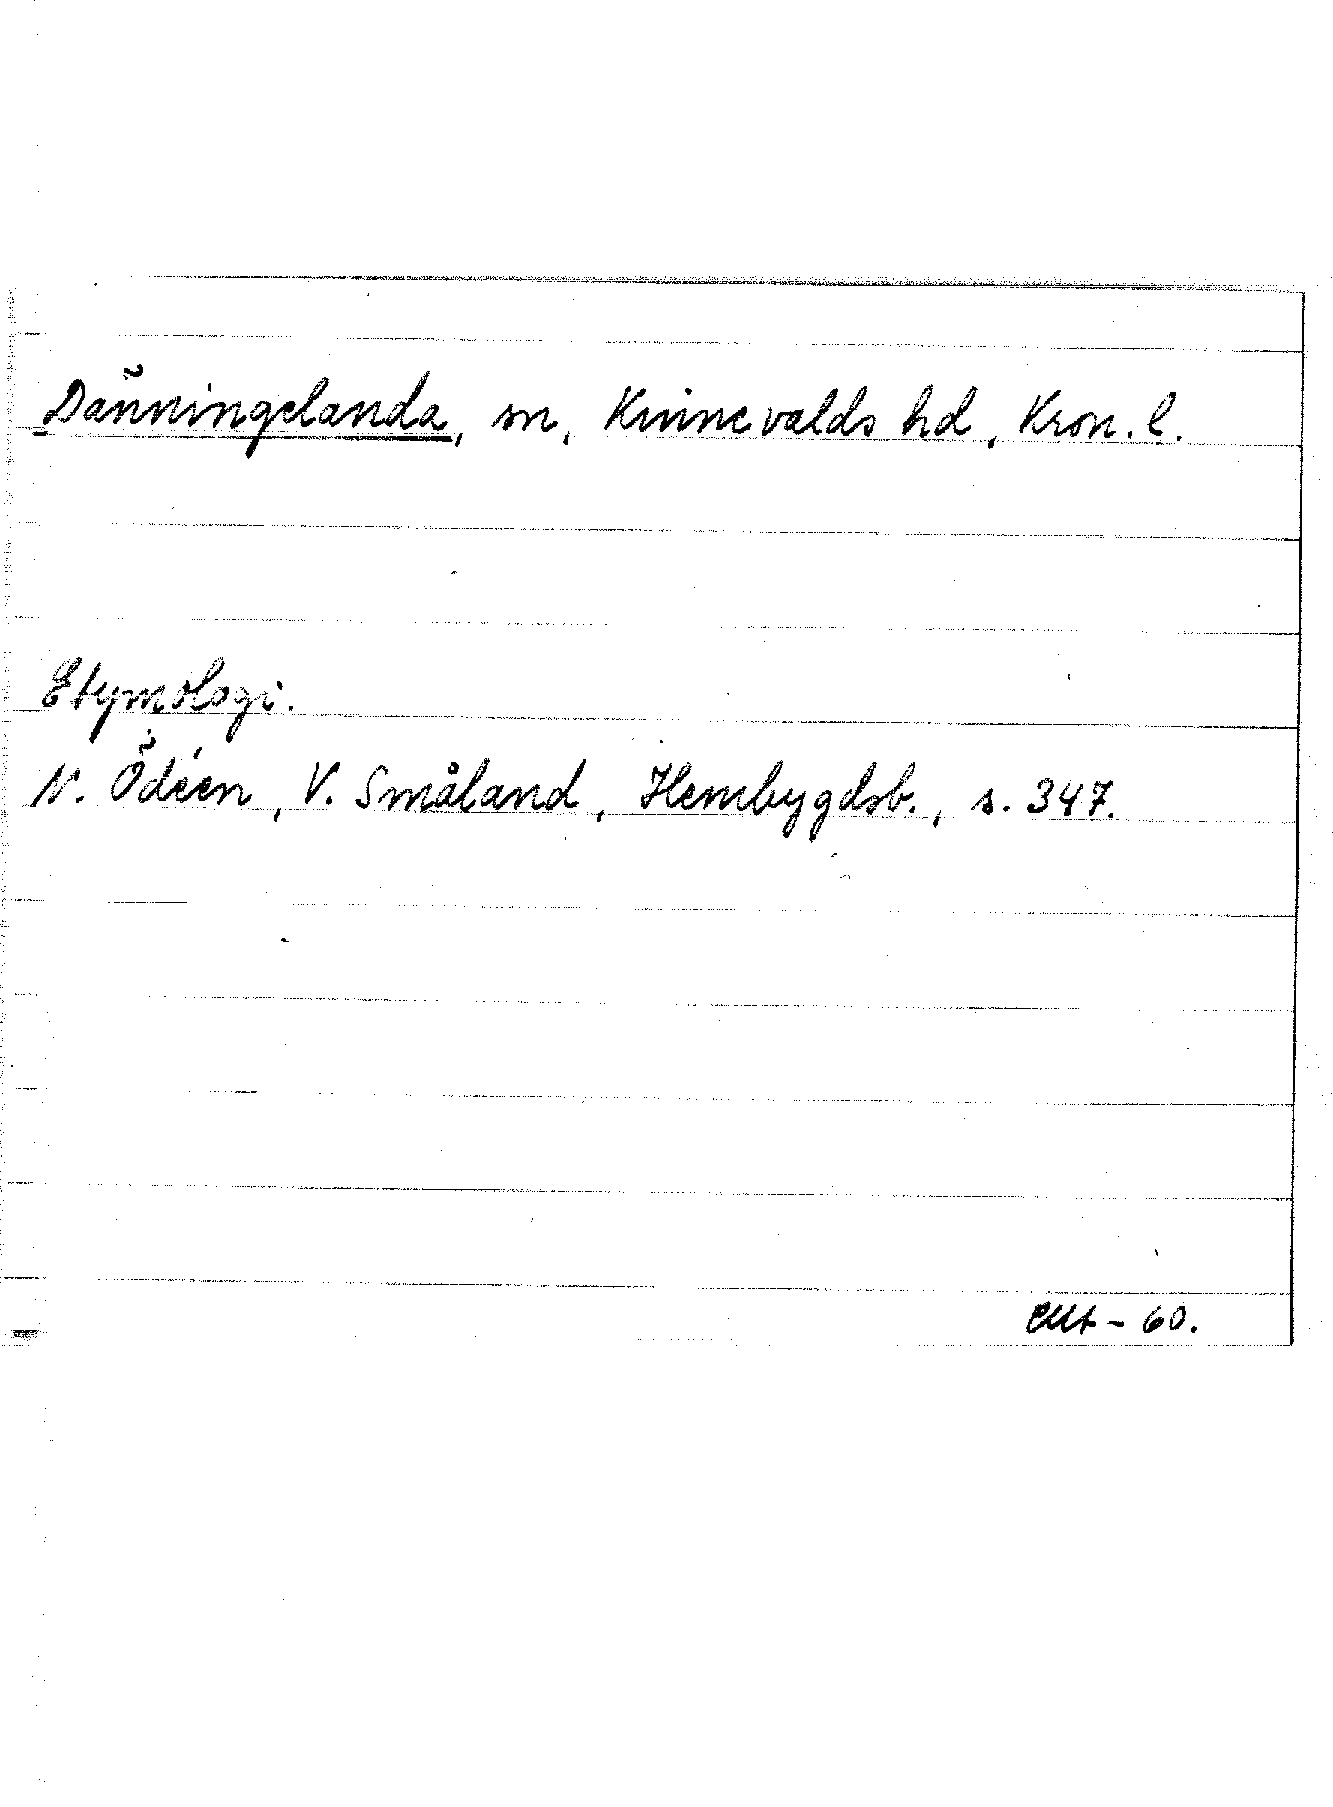 Dänningelanda, sn, Kinnevalds hd, Kron. l.
Etymologi.
N. Ödéen, V. Småland, Hembygdsb., s. 347.
-60.